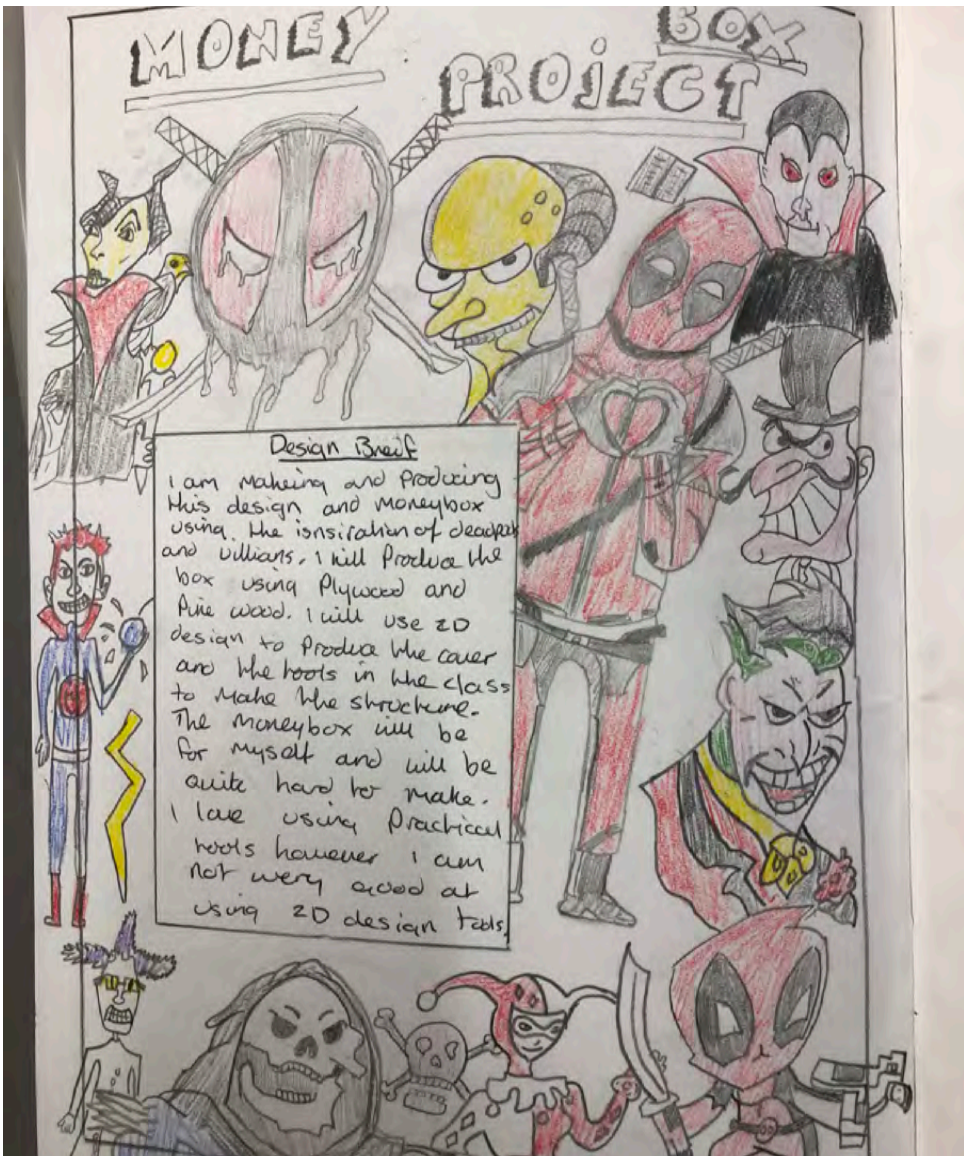 MONEY BOX
PROJECT
Design Breif
I am Makeing and Producing
this design and Moneybox
using the isnsiration of deadpool
and villians. I will Produce the
box using Plywood and
Pine wood. I will use 2D
design to Produce the cover
and the tools in the class
to make the structure.
The Moneybox will be
for myself and will be
quite hard to make.
I love using Practical
tools however I am
not very good at
using 2D design tools.